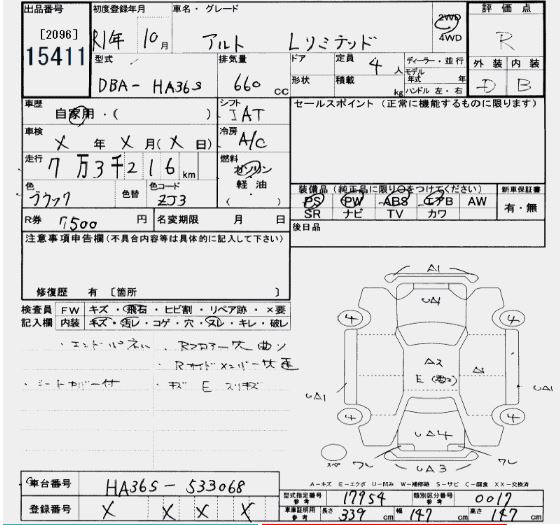 出品番号 初度登録年月 車名・グレード 2WD 4WD 評価点
[2096] 15411 R1年 10月 アルト Lリミテッド R
型式 排気量 ドア 定員 ディーラー・並行 外装 内装
DBA-HA36S 660 CC 形状 積載 4人 kg モデル年式 年 ハンドル 左・右 D B
車歴 自家用・( ) シフト IAT セールスポイント(正常に機能するものに限ります)
車検 X年 X月(X日) 冷房 A/C
走行 7万3千216km 燃料 ガソリン 軽油
色 ブラック 色替 色コード ZJ3 装備品(純正品に限り○をつけてください) 新車保証書
R券 7500円 名変期限 月 日 PS PW ABS エアB AW 有・無
SR ナビ TV カワ
注意事項申告欄(不具合内容等は具体的に記入して下さい) 後日品
修復歴 有〔箇所 〕
検査員 FW キズ・飛石・ヒビ割・リペア跡・×要
記入欄 内装 キズ・汚レ・コゲ・穴・スレ・キレ・破レ
・エンドパネル ・Rフロアー大曲リ
・Rサイドメンバー大歪
・シートカバー付 ・キズ E スリキズ
A1
UA1
4 4
A2
E(多数)
UA1 A1 UA1
4 4
UA4
ワレ ワレ
UA3
スペア
A-キズ E-エクボ U-凹み W-補修跡 S-サビ C-腐食 XX-交換済
車台番号 HA36S-533068 型式指定番号 参考 17954 類別区分番号 参考 0017
登録番号 X X X X 車庫証明用 参考 長さ 339cm 幅 147cm 高さ 147cm